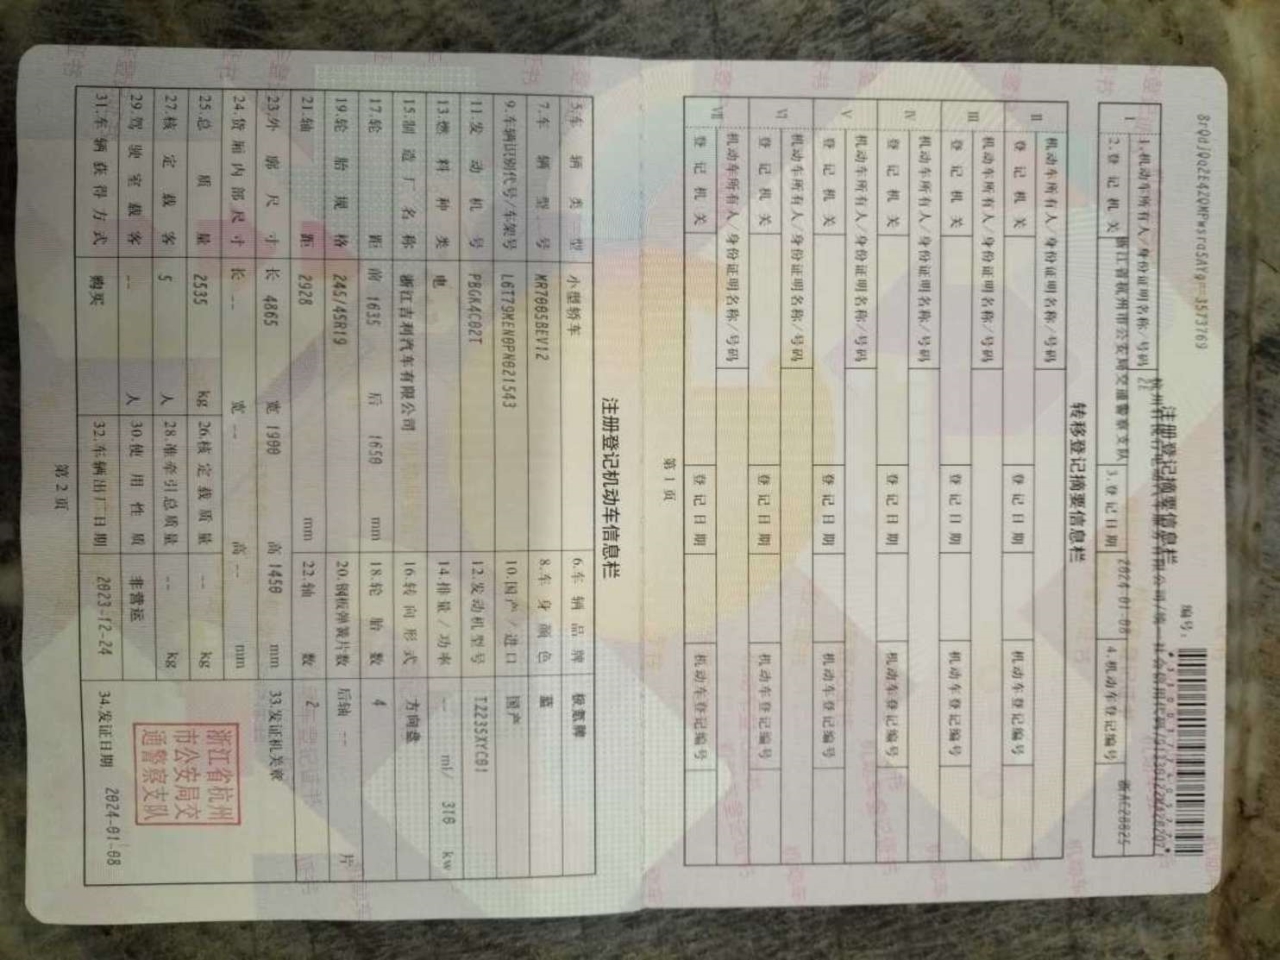 8rQdJQqZE4ZQMPwsrdSAYg==3573769
编号:
注册登记摘要信息栏
I
1.机动车所有人/身份证明名称/号码
2.登记机关
浙江省杭州市公安局交通警察支队
3.登记日期
2024-01-08
4.机动车登记编号
转移登记摘要信息栏
II
机动车所有人/身份证明名称/号码
登记机关
登记日期
机动车登记编号
III
机动车所有人/身份证明名称/号码
登记机关
登记日期
机动车登记编号
IV
机动车所有人/身份证明名称/号码
登记机关
登记日期
机动车登记编号
V
机动车所有人/身份证明名称/号码
登记机关
登记日期
机动车登记编号
VI
机动车所有人/身份证明名称/号码
登记机关
登记日期
机动车登记编号
VII
机动车所有人/身份证明名称/号码
登记机关
登记日期
机动车登记编号
第 1 页
注册登记机动车信息栏
5.车辆类型 小型轿车 6.车辆品牌 极氪牌
7.车辆型号 MR7005BEV12 8.车身颜色 蓝
9.车辆识别代号/车架号 L6T79MEN0PN021543 10.国产/进口 国产
11.发动机号 PBGK4C02T 12.发动机型号 TZ235XYC01
13.燃料种类 电 14.排量/功率 -- ml/ 310 kw
15.制造厂名称 浙江吉利汽车有限公司 16.转向形式 方向盘
17.轮距 前 1635 后 1650 mm 18.轮胎数 4
19.轮胎规格 245/45R19 20.钢板弹簧片数 后轴 -- 片
21.轴距 2928 mm 22.轴数 2
23.外廓尺寸 长 4865 宽 1900 高 1450 mm 33.发证机关章
24.货厢内部尺寸 长 -- 宽 -- 高 -- mm
25.总质量 2535 kg 26.核定载质量 -- kg
27.核定载客 5 人 28.准牵引总质量 -- kg
29.驾驶室载客 -- 人 30.使用性质 非营运
浙江省杭州
市公安局交
通警察支队
31.车辆获得方式 购买 32.车辆出厂日期 2023-12-24 34.发证日期 2024-01-08
第 2 页